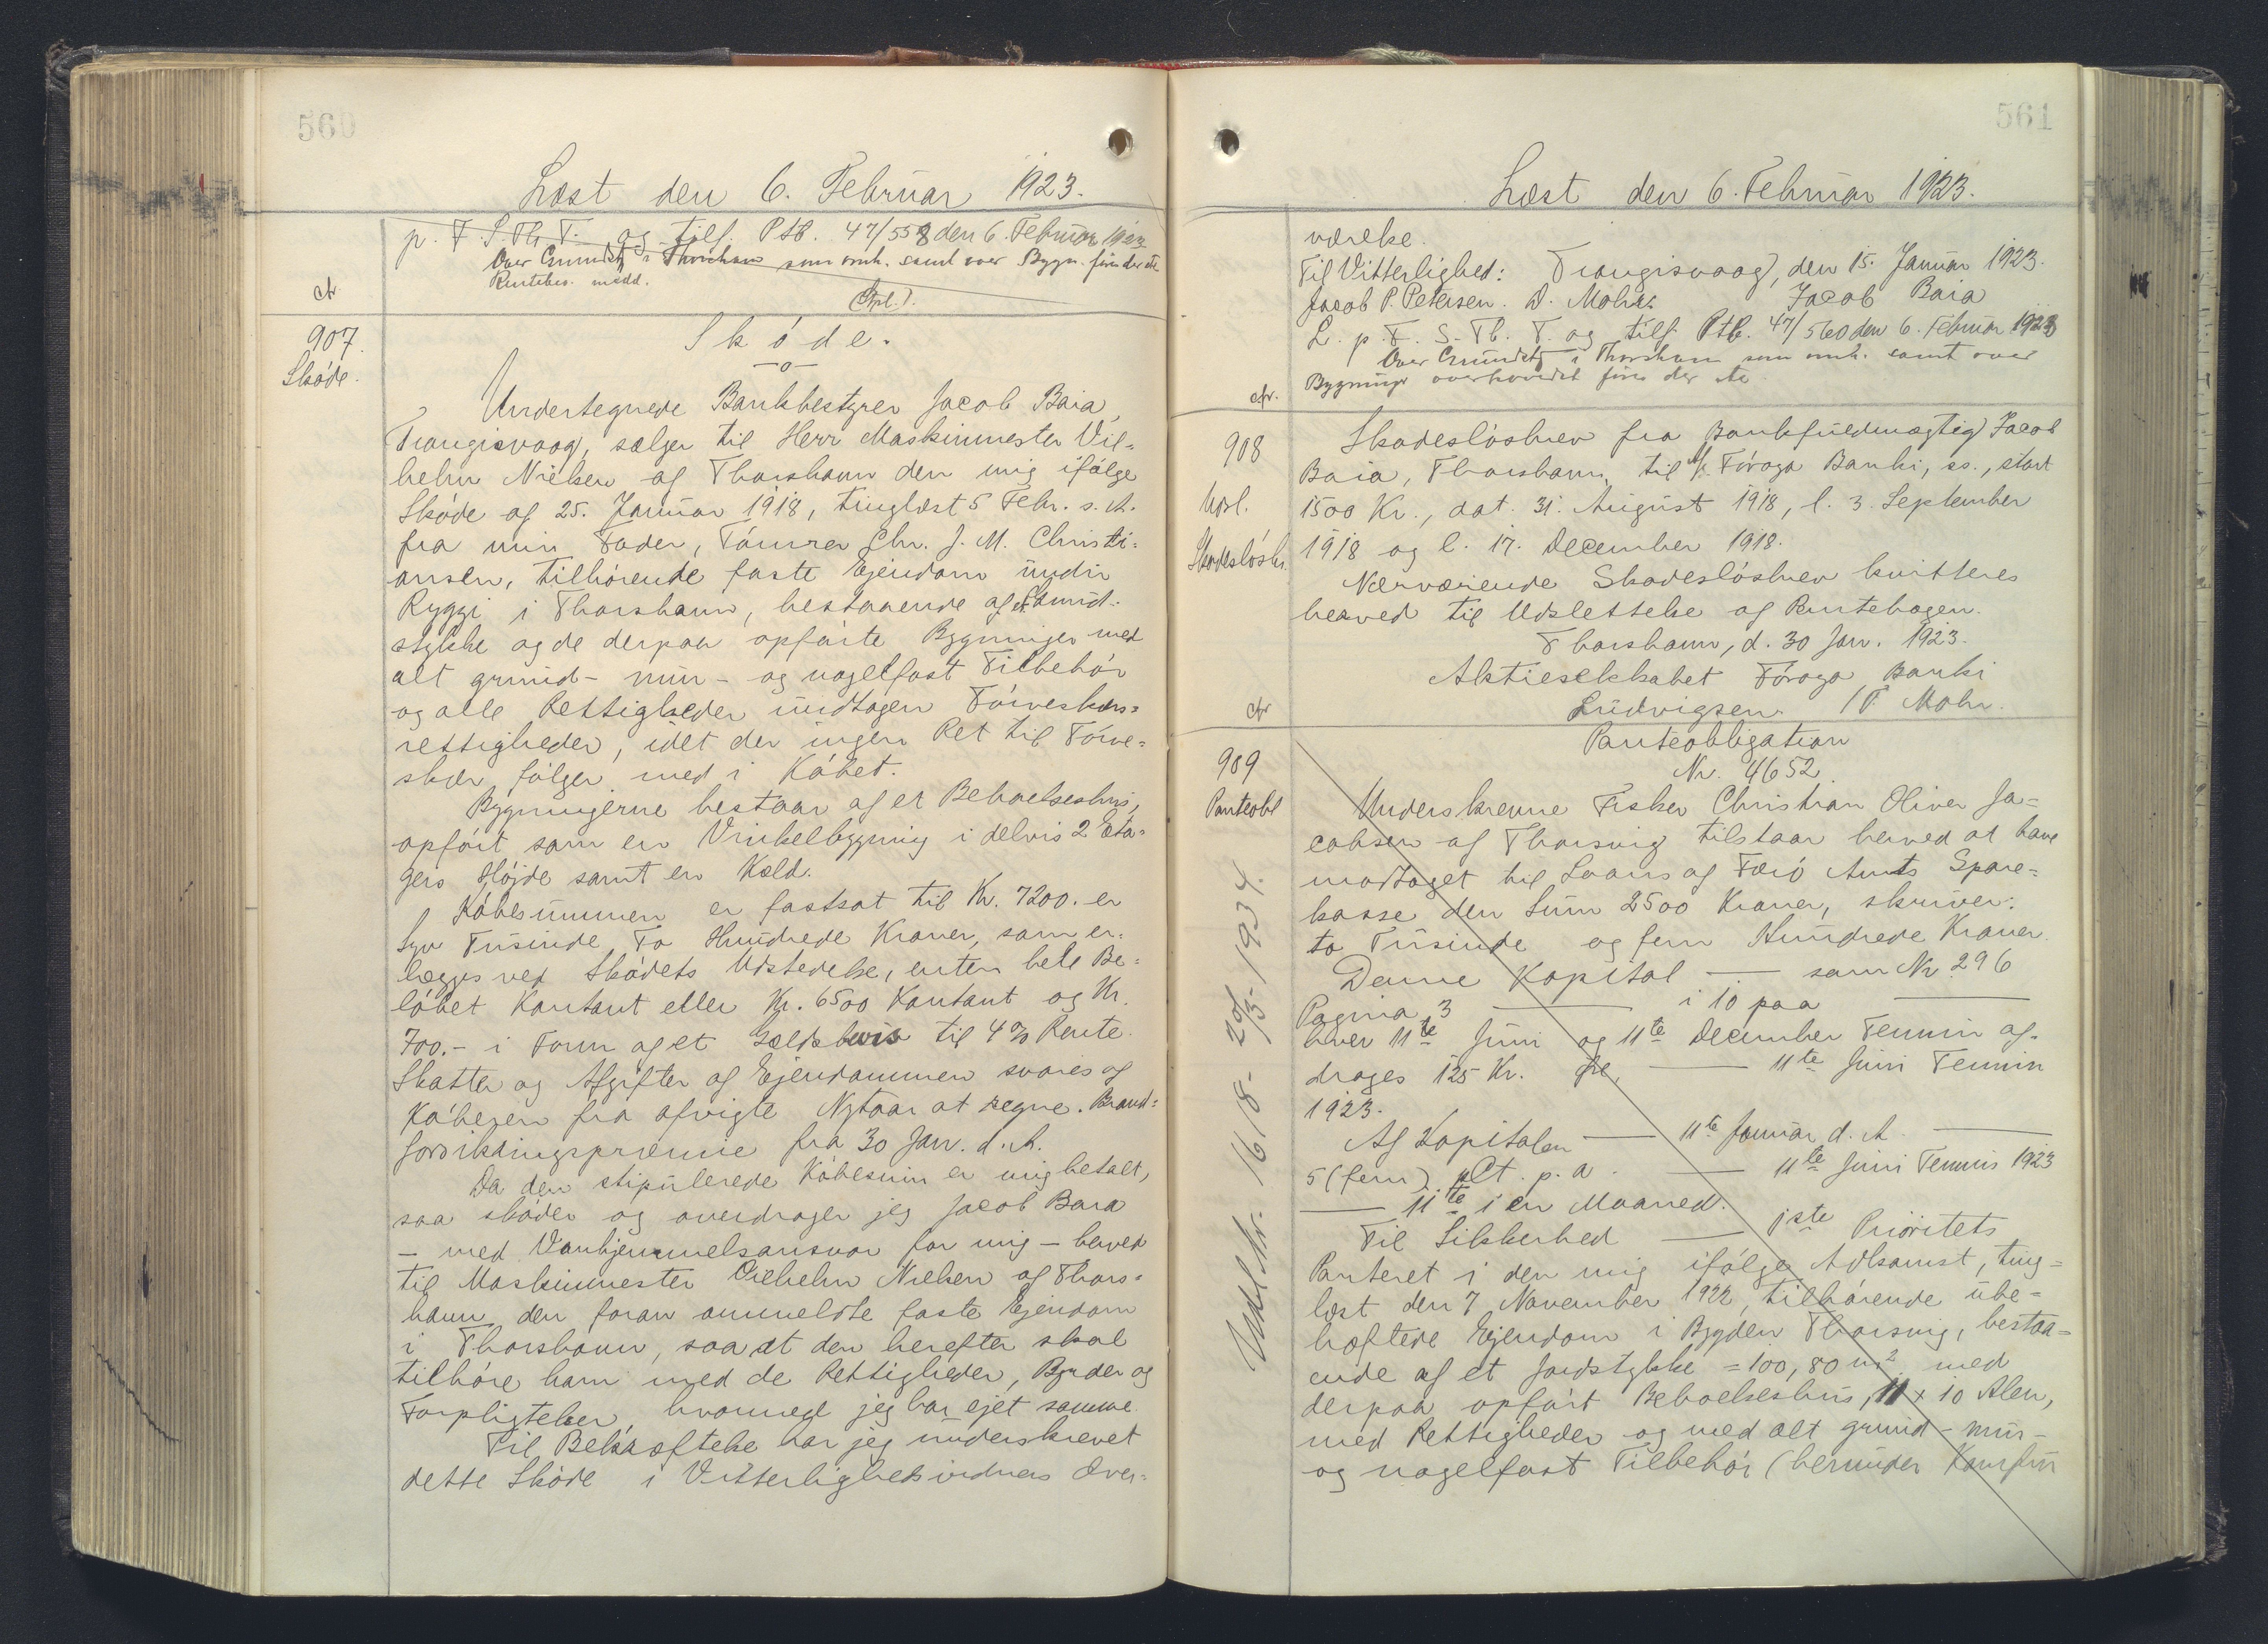 560
Læst den 6. Februar 1923.
p. F. S. Th. T. og tilf. Ptb. 47/558 den 6. Februar 1923
Over Grundstk i Thorshavn som omh. samt over Bygn. føres der ikke
Rentebes. medd.
cfr
907.
Skøde.
Skøde.
—o—
Undertegnede Bankbestyrer Jacob Baia,
Trangisvaag, sælger til Herr Maskinmester Vil=
helm Nielsen af Thorshavn den mig ifølge
Skøde af 25. Januar 1918, tinglæst 5 Febr. s. A.
fra min Fader, Tømrer Chr. J. M. Christi=
ansen, tilhørende faste Ejendom undir
Ryggi i Thorshavn, bestaaende af et Grund-
stykke og de derpaa opførte Bygninger med
alt grund- mur- og nagelfast Tilbehör
og alle Rettigheder undtagen Törveskærs=
rettigheder, idet der ingen Ret til Törve=
skær følger med i Købet.
Bygningerne bestaar af et Beboelseshus,
opført som en Vinkelbygning i delvis 2 Eta=
gers Højde samt en Kæld.
Købesummen er fastsat til Kr. 7200. er
Syv Tusinde To Hundrede Kroner, som er=
lægges ved Skødets Udstedelse, enten hele Be=
løbet Kontant eller Kr. 6500 Kontant og Kr.
700.- i Form af et Gældsbevis til 4% Rente.
Skatter og Afgifter af Ejendommen svares af
Køberen fra afvigte Nytaar at regne. Brand=
forsikringspræmie fra 30 Jan. d. A.
Da den stipulerede Købesum er mig betalt,
saa skøder og overdrager jeg Jacob Baia
— med Vanhjemmelsansvar for mig — herved
til Maskinmester Vilhelm Nielsen af Thors=
havn den foran ommeldte faste Ejendom
i Thorshavn, saa at den herefter skal
tilhøre ham med de Rettigheder, Byrder og
Forpligtelser, hvormed jeg har ejet samme.
Til Bekræftelse har jeg underskrevet
dette Skøde i Vitterlighedsvidners Over=
561
Læst den 6. Februar 1923.
værelse.
Til Vitterlighed: Trangisvaag, den 15. Januar 1923.
Jacob P. Petersen. D. Mohr. Jacob Baia
L. p. F. S. Th. T. og tilf. Ptb. 47/560 den 6. Februar 1923
Over Grundstk i Thorshavn som omh. samt over
Bygninger overhovedet føres der ikke
cfr.
908
Udsl.
Skadesløsbr.
Skadesløsbrev fra Bankfuldmægtig Jacob
Baia, Thorshavn, til A/S Føroya Banki, ss., stort
1500 Kr., dat. 31. August 1918, l. 3. September
1918 og l. 17. December 1918.
Nærværende Skadesløsbrev kvitteres
herved til Udslettelse af Pantebogen.
Thorshavn, d. 30 Jan. 1923.
Aktieselskabet Føroya Banki
Ludvigsen / P. Mohr.
cfr
909
Panteobl
Panteobligation
Nr. 4652.
Underskrevne Fisker Christian Oliver Ja=
cobsen af Thorsvig tilstaar herved at have
modtaget til Laans af Færö Amts Spare=
kasse den Sum 2500 Kroner, skriver:
to Tusinde og fem Hundrede Kroner.
Denne Kapital — som Nr. 296
Pagina 3 — i 10 paa —
hver 11te Juni og 11te December Termin af-
drages 125 Kr. — 11te Juni Termin
1923.
Af Kapitalen — 11te Januar d. A. —
5 (fem) pCt. p. a. — 11te Juni Termin 1923
— 11te i en Maaned.
Til Sikkerhed — 1ste Prioritets
Panteret i den mig ifølge Adkomst, ting=
læst den 7 November 1922, tilhørende ube=
hæftede Ejendom i Bygden Thorsvig, bestaa=
ende af et Jordstykke = 100,80 m² med
derpaa opført Beboelseshus, 11 x 10 Alen,
med Rettigheder og med alt grund- mur-
og nagelfast Tilbehör (herunder Komfur
Udslettet. 16/18- 29/5-1934.